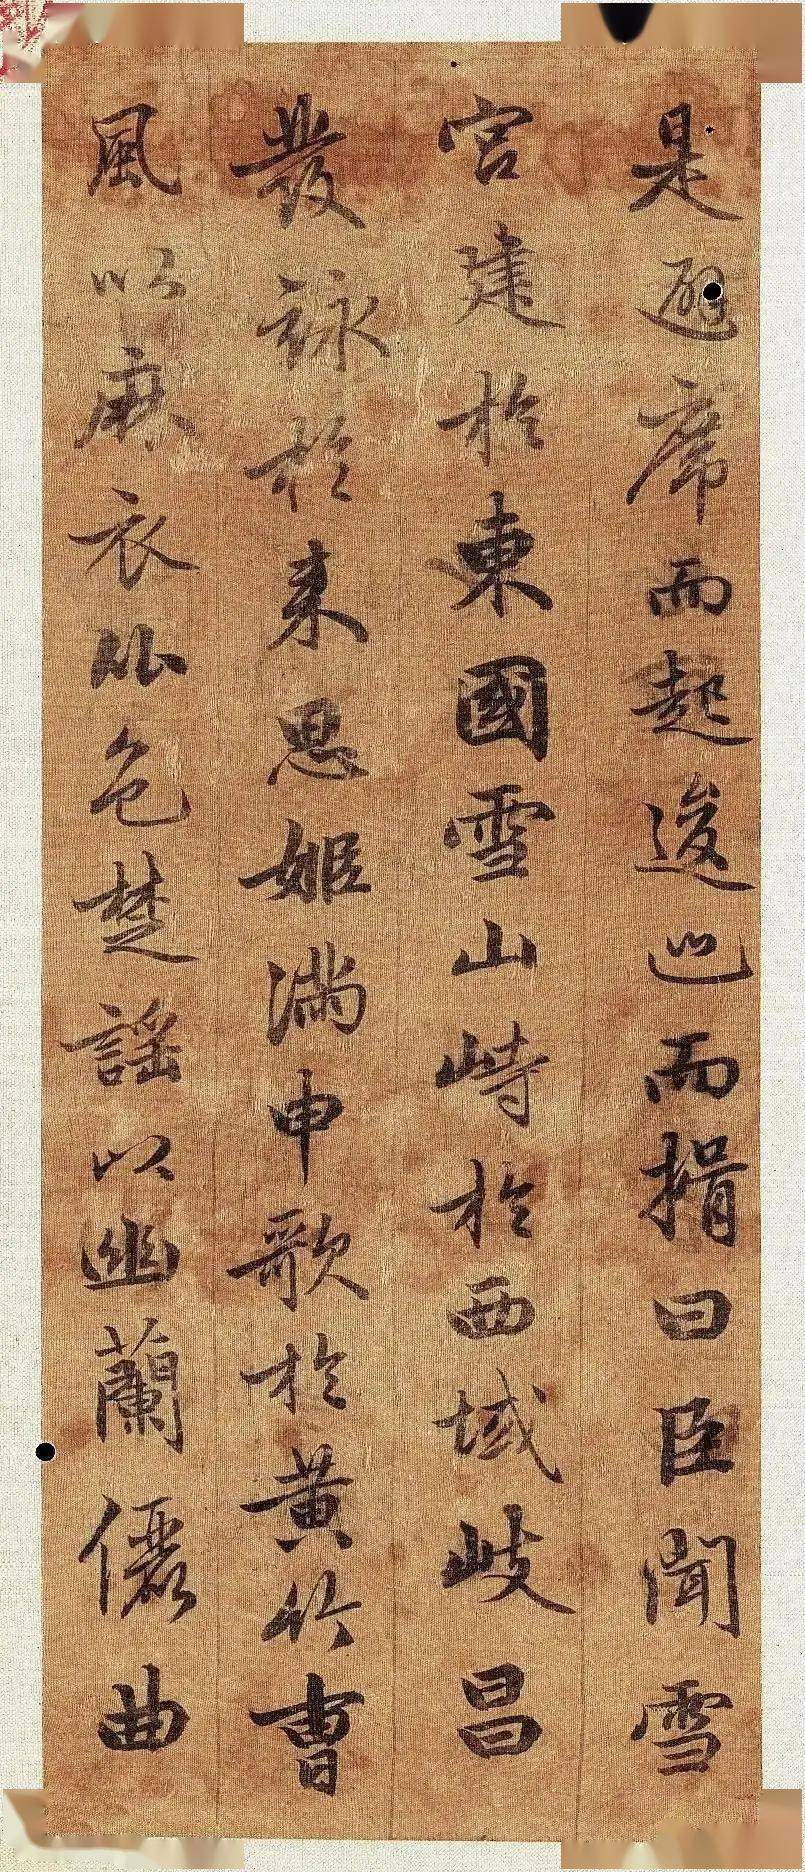 是避席而起逡巡而揖曰臣聞雪
宮建於東國雪山峙於西域岐昌
發詠於来思姬滿申歌於黄竹曹
風以麻衣比色楚謡以幽蘭儷曲